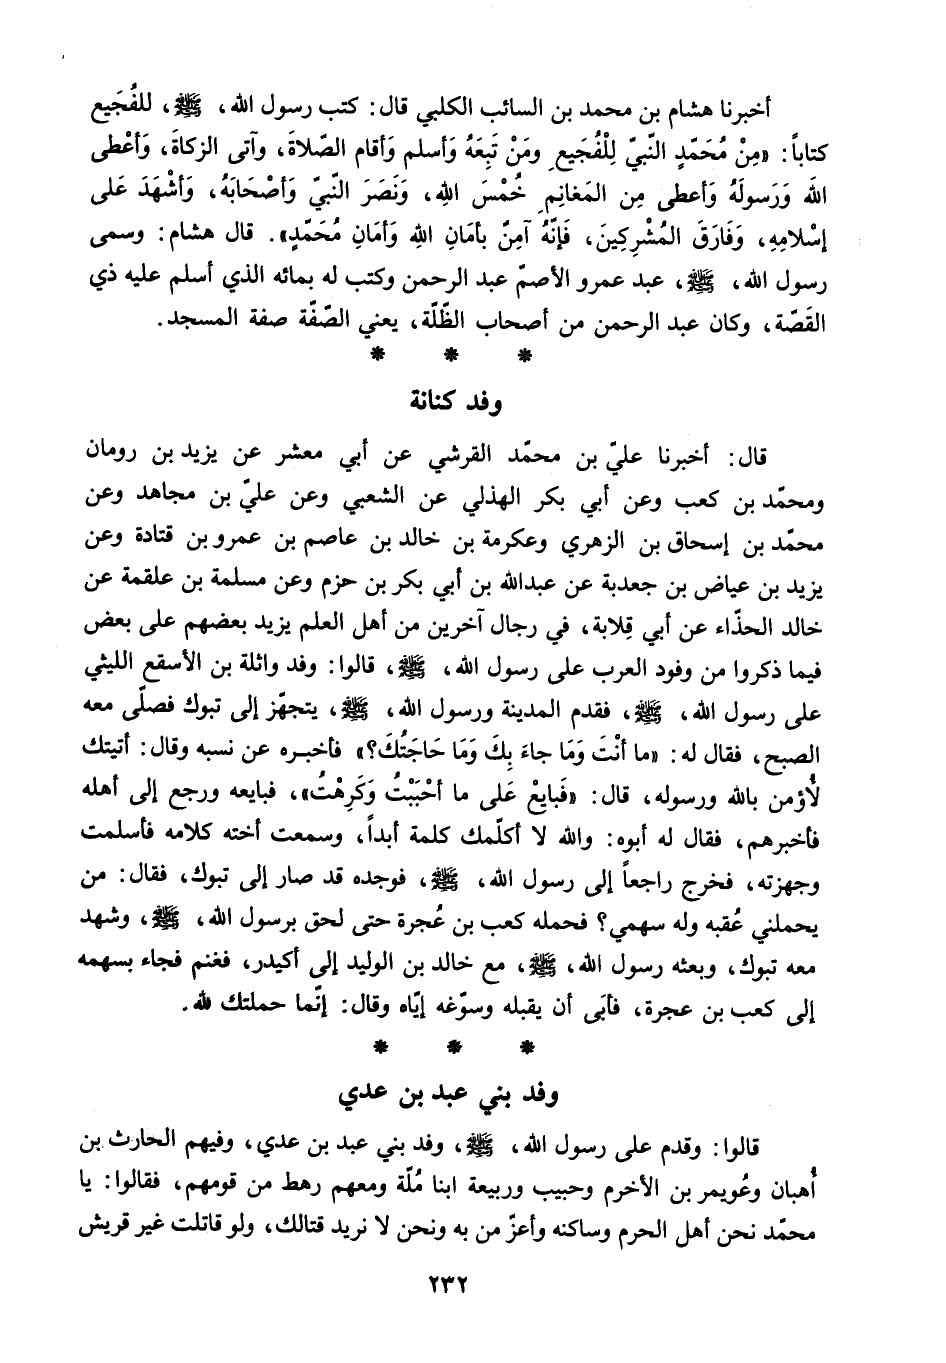 أخبرنا هشام بن محمد بن السائب الكلبي قال: كتب رسول الله، ﷺ، للفُجَيع
كتاباً: «مِنْ مُحَمّدٍ النّبيّ لِلْفُجَيعِ ومَنْ تَبِعَهُ وَأسلم وَأقام الصّلاةَ، وآتى الزكاةَ، وَأعْطى
اللهَ وَرَسولَهُ وَأعطى مِن المَغانِمِ خُمْسَ اللهِ، وَنَصَرَ النّبيّ وَأصْحَابَهُ، وَأشْهَدَ عَلى
إسْلامِهِ، وَفَارَقَ المُشْرِكِينَ، فَإنّهُ آمِنٌ بأمَانِ اللهِ وَأمَانِ مُحَمّدٍ». قال هشام: وسمى
رسول الله، ﷺ، عبد عمرو الأصمّ عبد الرحمن وكتب له بمائه الذي أسلم عليه ذي
القَصّة، وكان عبد الرحمن من أصحاب الظّلّة، يعني الصّفّة صفة المسجد.
* * *
وفد كنانة
قال: أخبرنا عليّ بن محمّد القرشي عن أبي معشر عن يزيد بن رومان
ومحمّد بن كعب وعن أبي بكر الهذلي عن الشعبي وعن عليّ بن مجاهد وعن
محمّد بن إسحاق بن الزهري وعكرمة بن خالد بن عاصم بن عمرو بن قتادة وعن
يزيد بن عياض بن جعدبة عن عبدالله بن أبي بكر بن حزم وعن مسلمة بن علقمة عن
خالد الحذّاء عن أبي قِلابة، في رجال آخرين من أهل العلم يزيد بعضهم على بعض
فيما ذكروا من وفود العرب على رسول الله، ﷺ، قالوا: وفد واثلة بن الأسقع الليثي
على رسول الله، ﷺ، فقدم المدينة ورسول الله، ﷺ، يتجهّز إلى تبوك فصلّى معه
الصبح، فقال له: «ما أنْتَ وَمَا جاءَ بِكَ وَمَا حَاجَتُكَ؟» فأخبره عن نسبه وقال: أتيتك
لأُؤمن بالله ورسوله، قال: «فَبايِعْ عَلى ما أحْبَبْتُ وَكَرِهْتُ»، فبايعه ورجع إلى أهله
فأخبرهم، فقال له أبوه: والله لا أكلّمك كلمة أبداً، وسمعت أخته كلامه فأسلمت
وجهزته، فخرج راجعاً إلى رسول الله، ﷺ، فوجده قد صار إلى تبوك، فقال: من
يحملني عُقبه وله سهمي؟ فحمله كعب بن عُجرة حتى لحق برسول الله، ﷺ، وشهد
معه تبوك، وبعثه رسول الله، ﷺ، مع خالد بن الوليد إلى أكيدر، فغنم فجاء بسهمه
إلى كعب بن عجرة، فأبَى أن يقبله وسوّغه إيّاه وقال: إنّما حملتك لله.
* * *
وفد بني عبد بن عدي
قالوا: وقدم على رسول الله، ﷺ، وفد بني عبد بن عدي، وفيهم الحارث بن
أُهبان وعُويمر بن الأخرم وحبيب وربيعة ابنا مُلّة ومعهم رهط من قومهم، فقالوا: يا
محمّد نحن أهل الحرم وساكنه وأعزّ من به ونحن لا نريد قتالك، ولو قاتلت غير قريش
٢٣٢